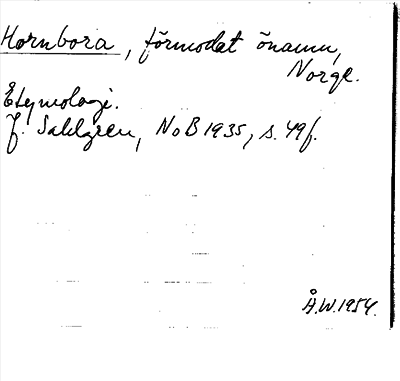 Hornbora, förmodat önamn,
Norge.
Etymologi.
J. Sahlgren, NoB 1935, s. 49f.
Å.W. 1954.